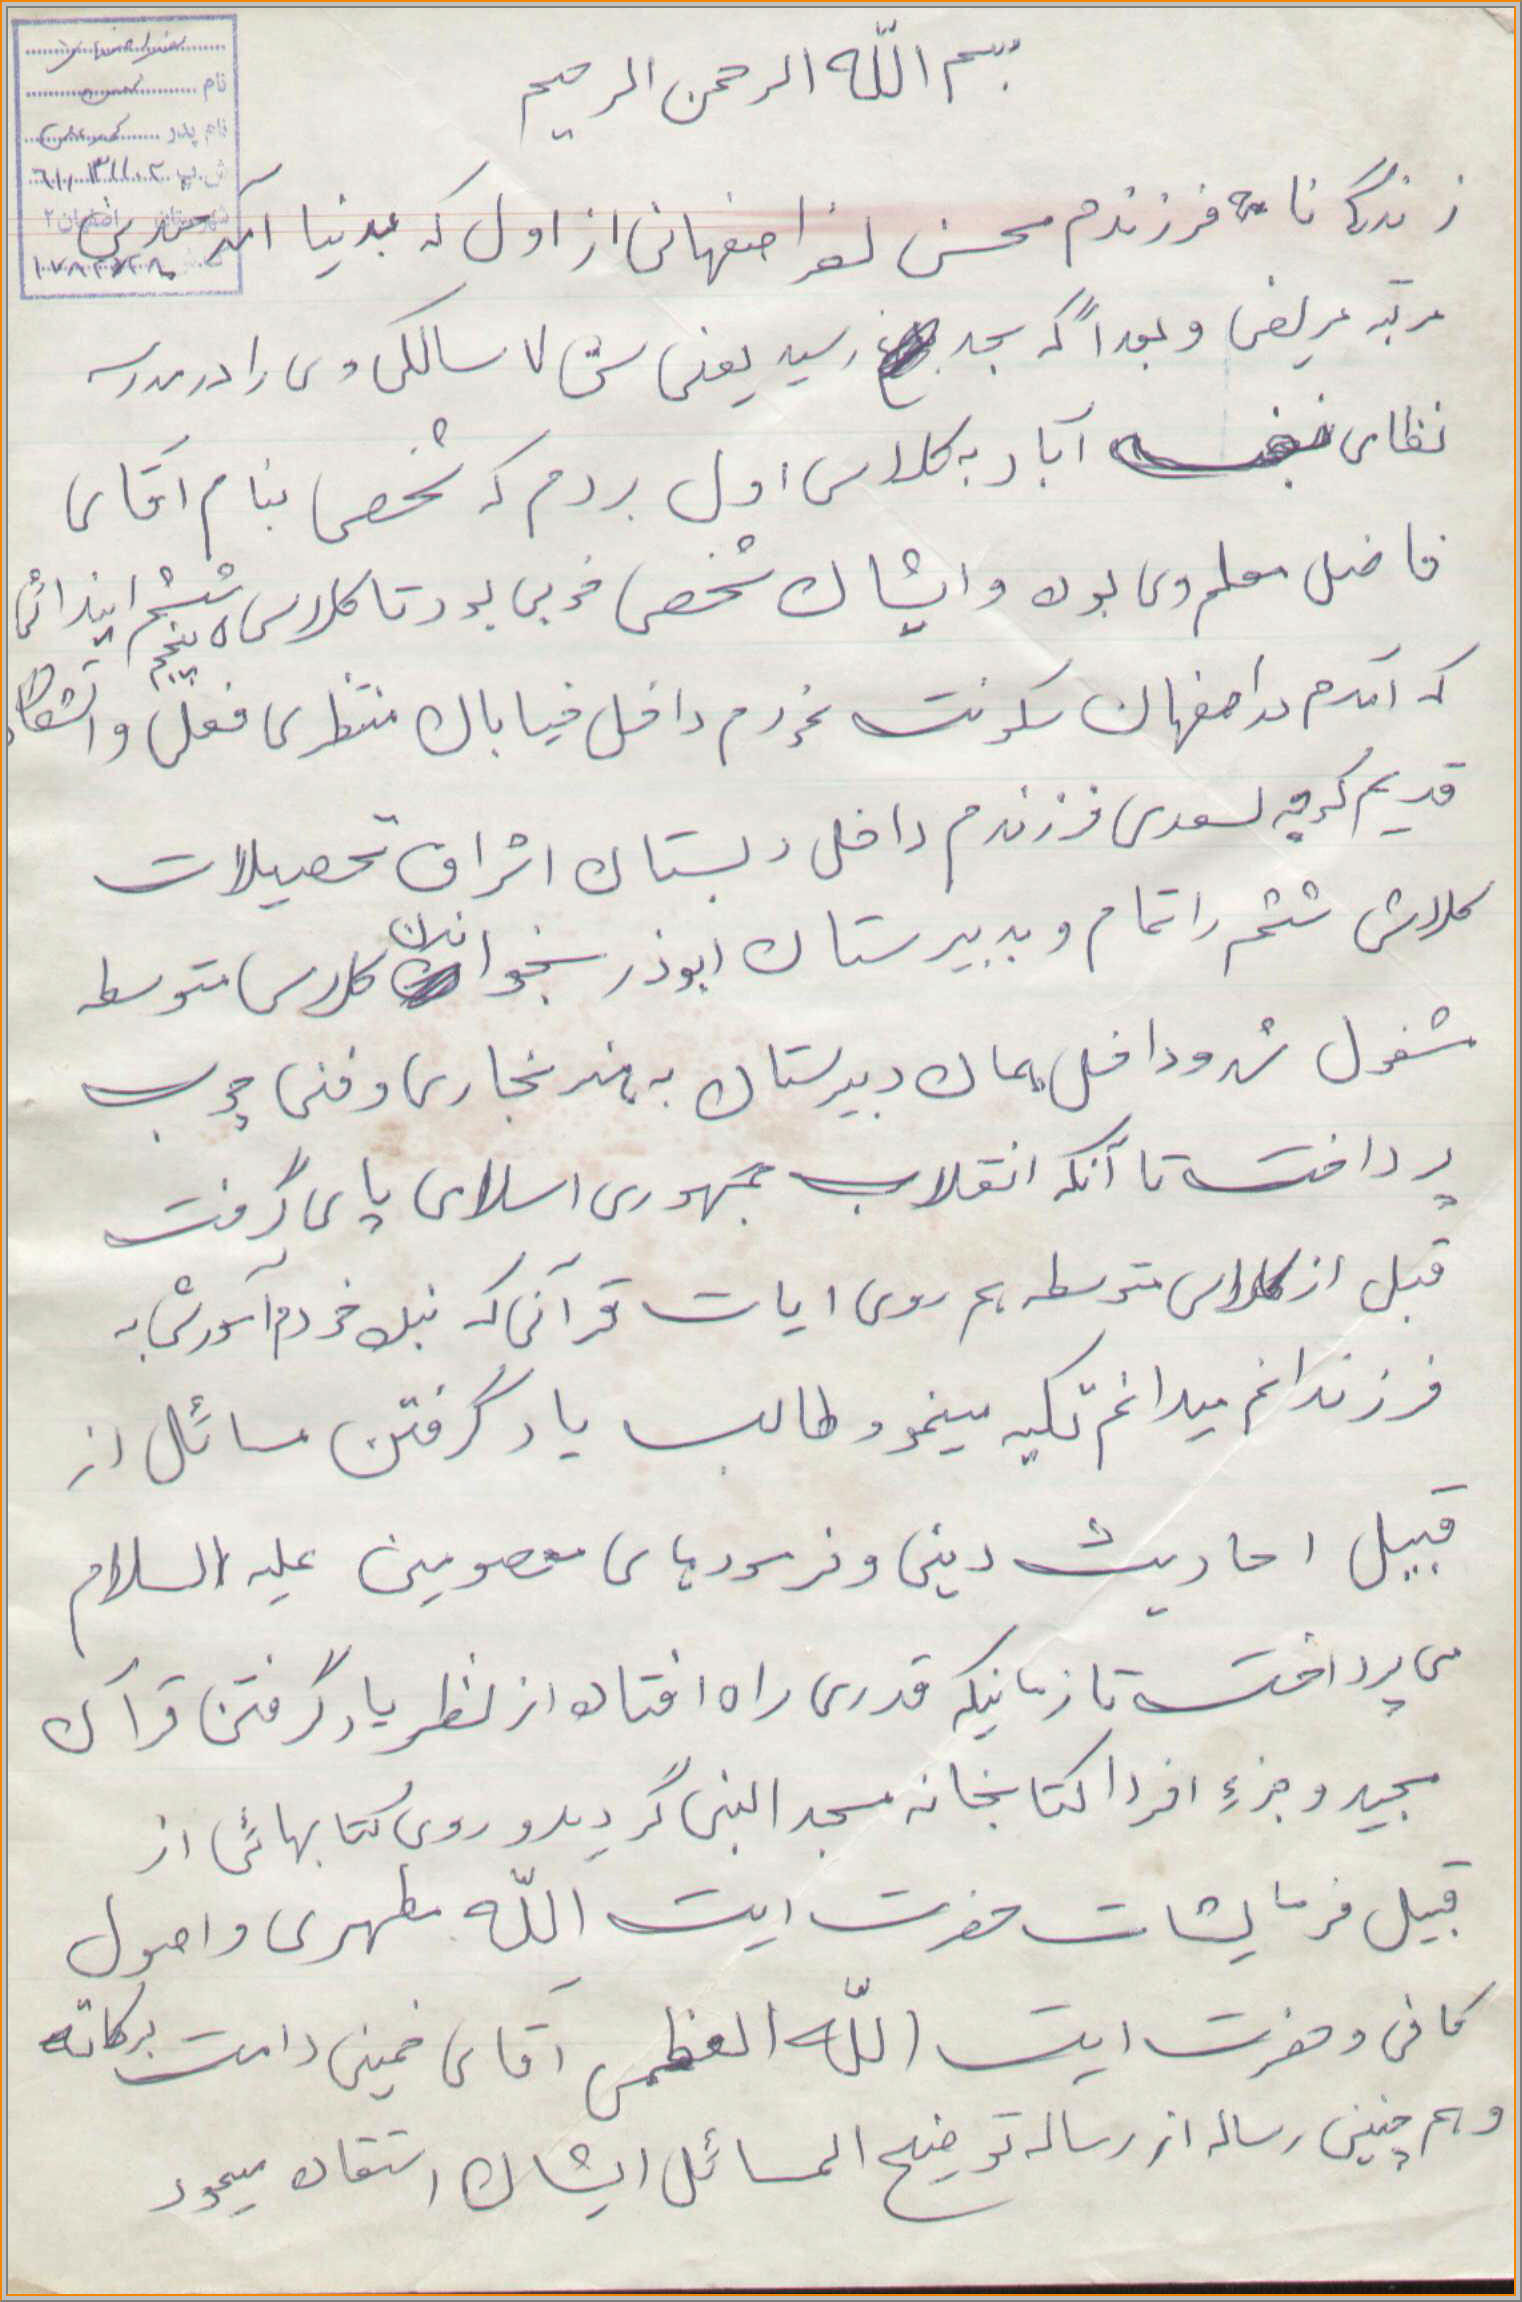 بسم الله الرحمن الرحیم
نام
نام پدر
ش.پ
زندگانامه فرزندم محسن نصر اصفهانی از اول که بدنیا آمد چندین
مرتبه مریض و بعداً که بحد رسید یعنی سن ۷ سالگی وی را در مدرسه
نظامی آباد به کلاس اول بردم که شخصی بنام آقای
فاضل معلم وی بود و ایشان شخصی خوبی بود تا کلاس ۵ پنجم ششم ابتدائی
که آمدم در اصفهان سکونت نمودم داخل خیابان منتظری فعلی و
قدیم کوچه سعدی فرزندم داخل دبستان اشراق تحصیلات
کلاس ششم را تمام و بدبیرستان ابوذر بخواندن کلاس متوسطه
مشغول شد و داخل همان دبیرستان به هنر نجاری و فنی چوب
پرداخت تا آنکه انقلاب جمهوری اسلامی پای گرفت
قبل از کلاس متوسطه هم روی ایات قرآنی که بنده خودم آموزش به
فرزندانم میدانم تکیه مینمود طالب یاد گرفتن مسائل از
قبیل احادیث دینی و فرمودهای معصومین علیه السلام
می پرداخت تا زمانیکه قدری راه افتاد از نظر یاد گرفتن قرآن
مجید و جزء افردا کتابخانه مسجد النبی گردید و روی کتابهائی از
قبیل فرمایشات حضرت ایت الله مطهری و اصول
کافی و حضرت ایت الله العظمی آقای خمینی دامت برکاته
و هم چنین رساله از رساله توضیح المسائل ایشان استفاده میمود